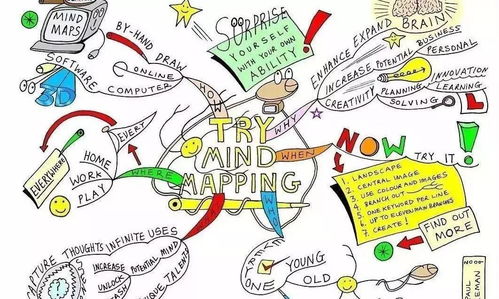 TRY
MIND
MAPPING
HOW
BY-HAND
DRAW
ONLINE
COMPUTER
MIND
MAPS
SOFTWARE
3D
SURPRISE
YOURSELF
WITH YOUR OWN
ABILITY!
WHY
ENHANCE EXPAND BRAIN
INCREASE POTENTIAL
BUSINESS
PERSONAL
CREATIVITY
PLANNING
SOLVING
INNOVATION
LEARNING
L
WHEN
NOW
TRY IT!
1. LANDSCAPE
2. CENTRAL IMAGE
3. USE COLOUR AND IMAGES
4. BRANCH OUT
5. ONE KEYWORD PER LINE
6. UP TO ELEVEN MAIN BRANCHES
7. CREATE!
FIND OUT
MORE
WHO
YOUNG
OLD
WHAT
THOUGHTS
INFINITE USES
INCREASE
UNLOCK
POTENTIAL MIND
WHERE
EVERY
HOME
WORK
PLAY
EVERYWHERE!
PAUL